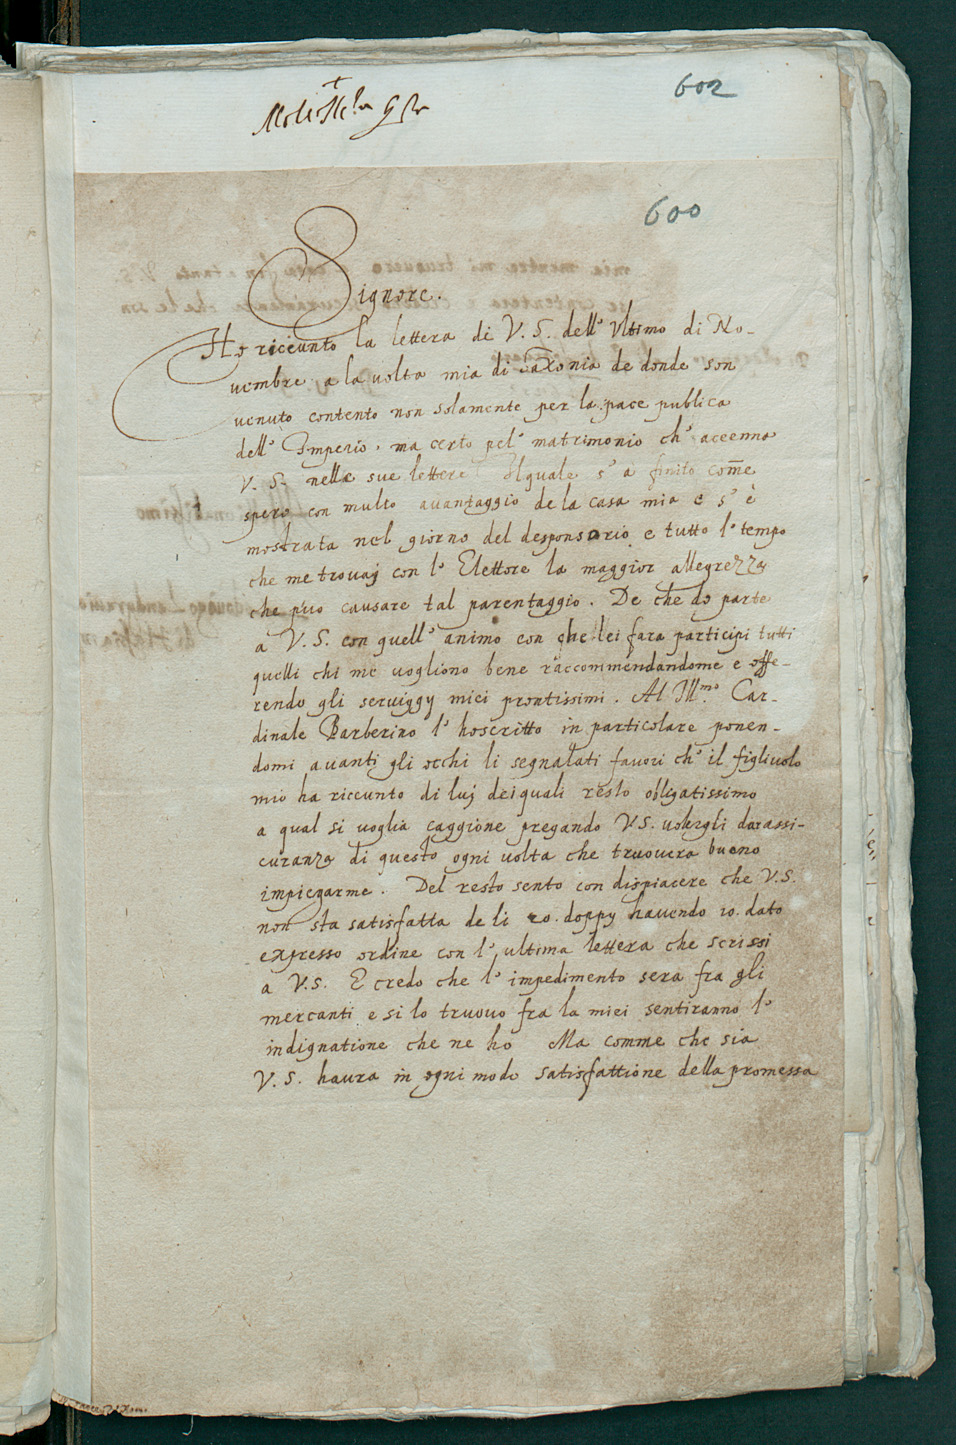 602
600
Signore.
Ho riceunto la lettera di V. S. dell' Vltimo di No-
uembre a la uolta mia di Saxonia de donde son
venuto contento non solamente per la pace publica
dell' Imperio, ma certo pel' matrimonio ch' acenna
V. S. nelle sue lettere Ilquale s' à finito come
spero con multo auantaggio de la casa mia e s' è
mostrata nel giorno del desponsorio e tutto l' tempo
che me trouaj con l' Elettore la maggior allegrezza
che puo causare tal parentaggio. De che do parte
à V. S. con quell' animo con che lei fara participi tutti
quelli chi me uogliono bene raccommendandome e offe-
rendo gli seruiggy miei prontissimi. Al Ill.mo Car-
dinale Barberino l' hoscritto in particolare ponen-
domi auanti gli occhi li segnalati fauori ch' il figliuolo
mio ha riceunto di luj dei quali resto obligatissimo
a qual si uoglia caggione pregando V.S. uolergli dar assi-
curanza di questo ogni uolta che truouera buono
impiegarme. Del resto sento con dispiacere che V.S.
non sta satisfatta de li 20. doppy hauendo io dato
expresso ordine con l' ultima lettera che scrissi
a V.S. E credo che l' impedimento sera fra gli
mercanti e si lo truouo fra la miei sentiranno l'
indignatione che ne ho Ma comme che sia
V. S. haura in ogni modo satisfattione della promessa